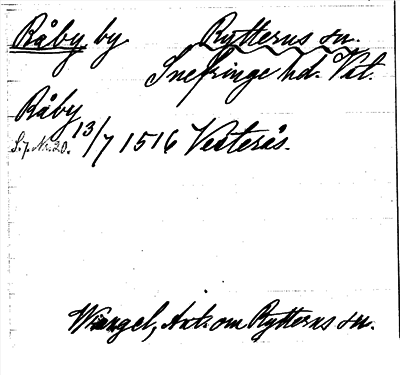 Råby by Rytterns sn.
Snefringe hd. Vst.
Råby
S. 7. Nr. 20. 13/7 1516 Vesterås.
Wrangel, Ant. om Rytterns sn.